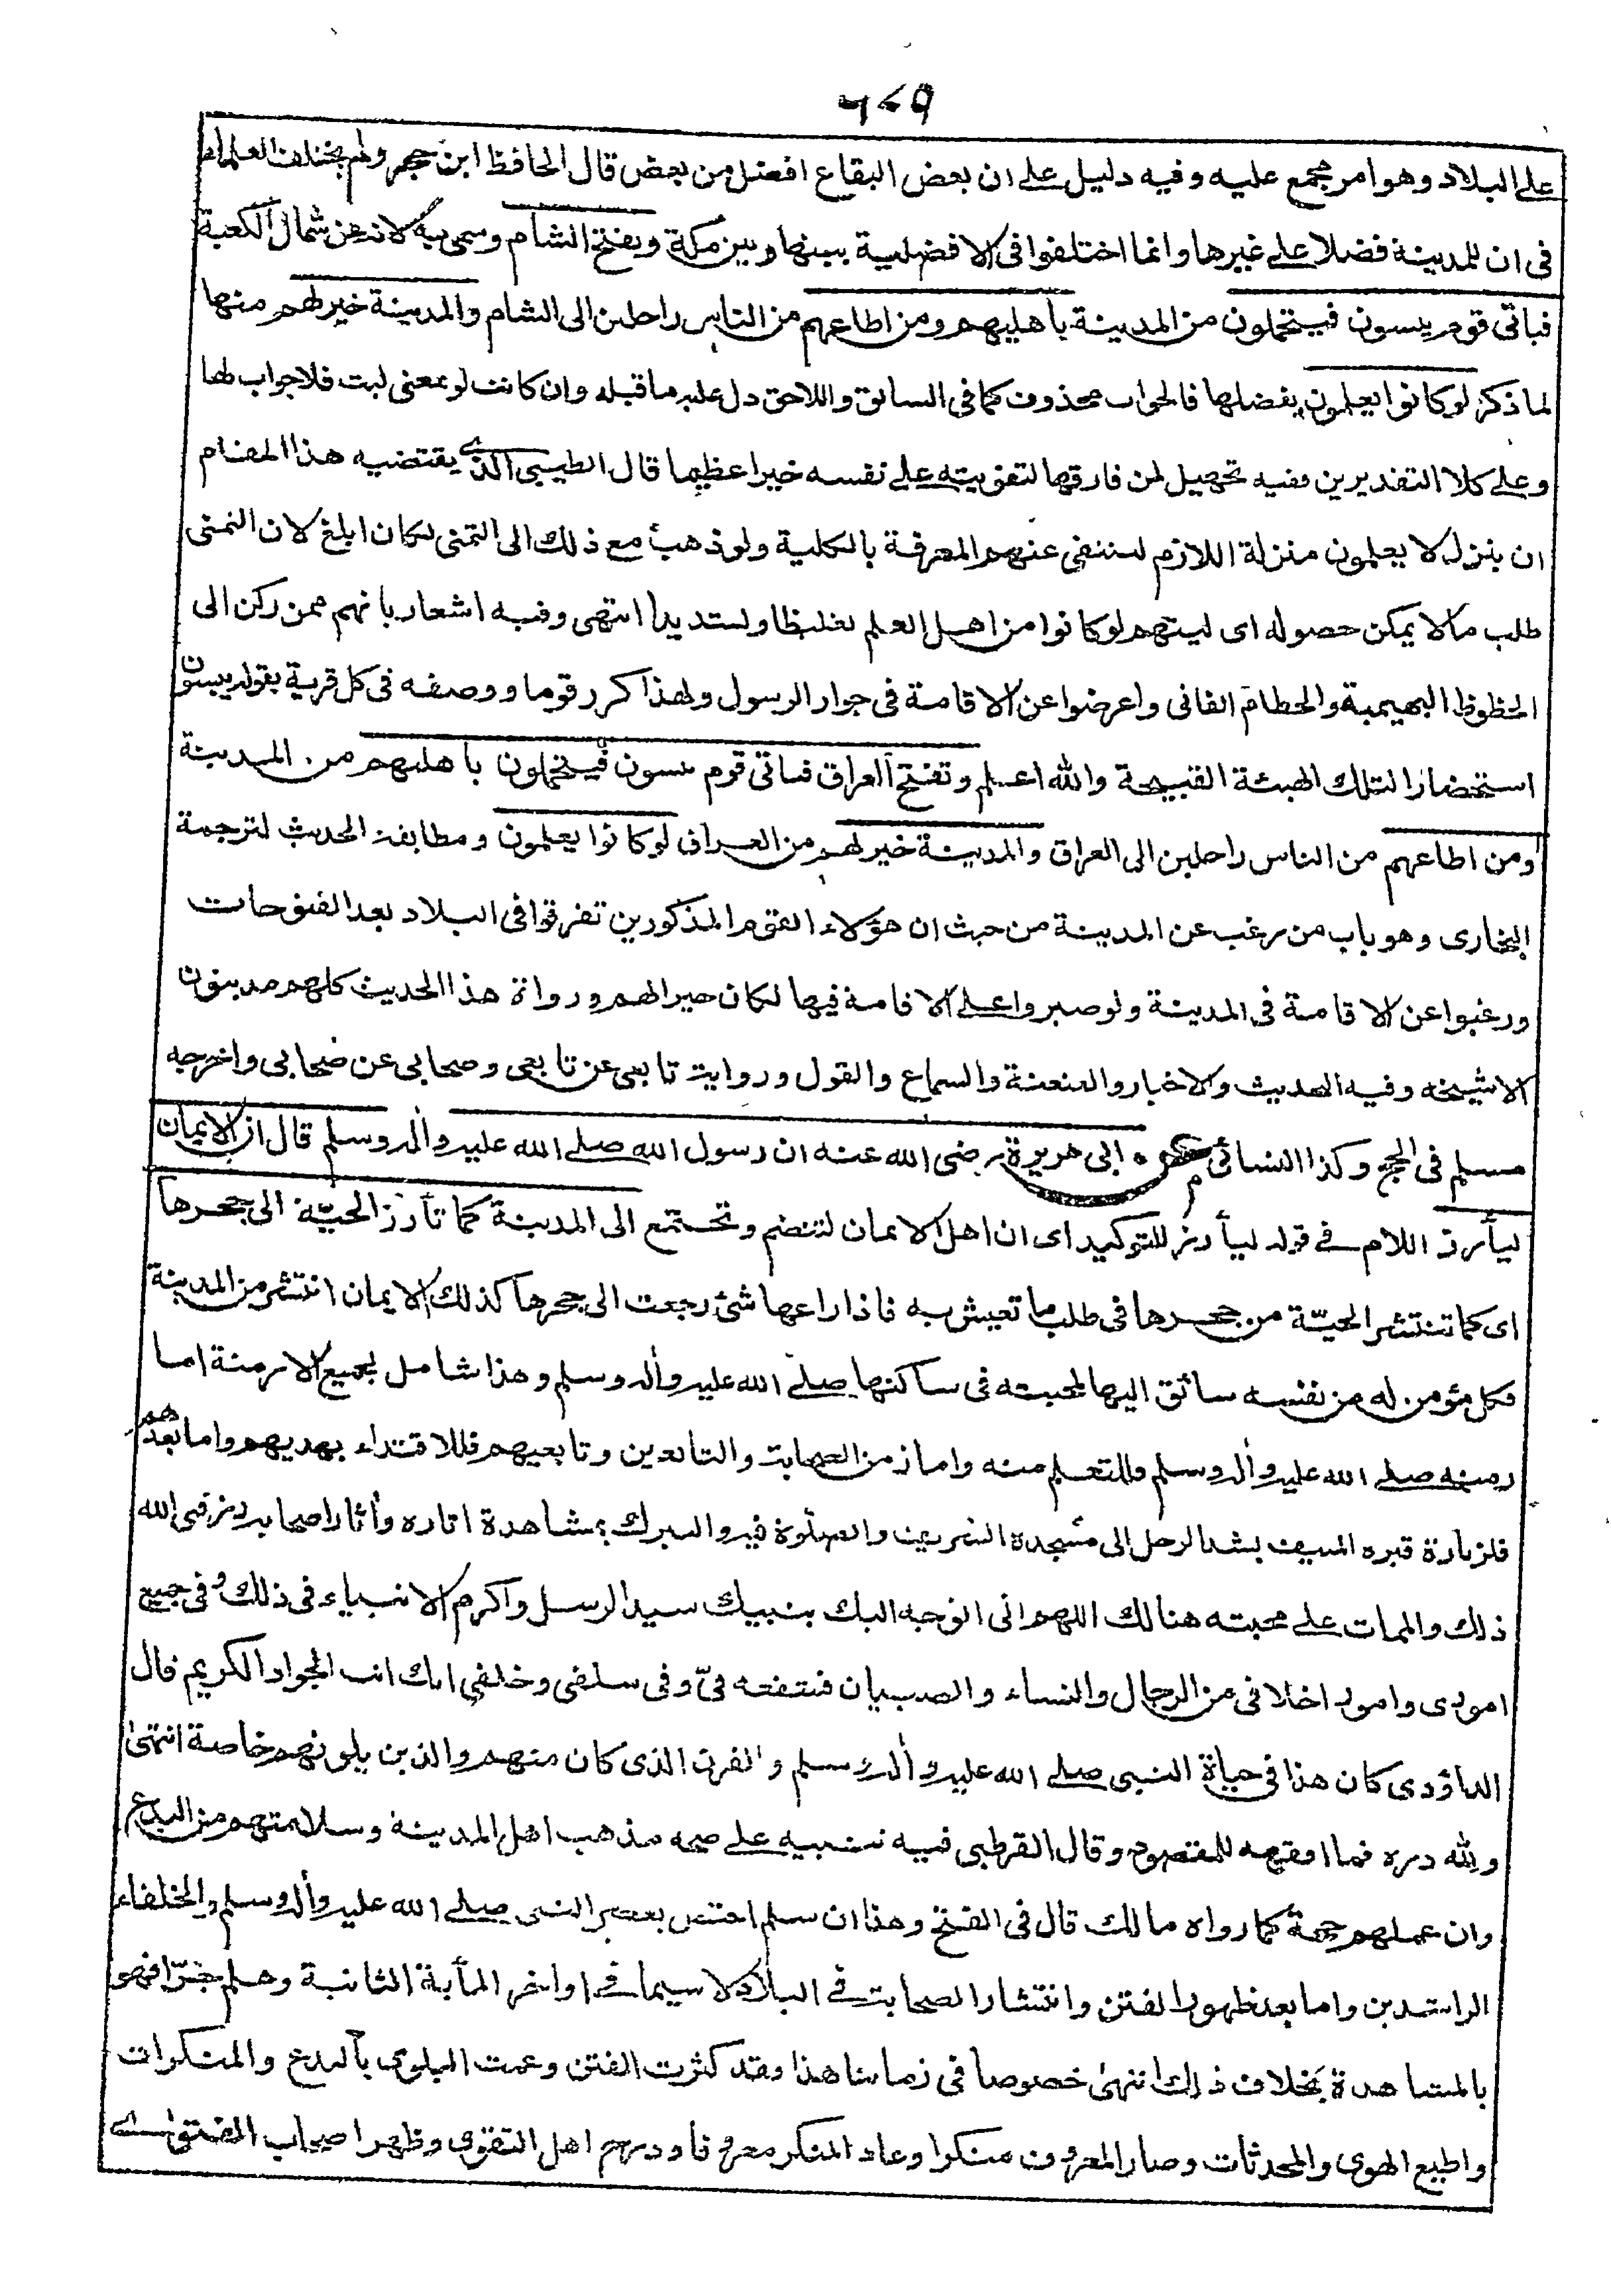 ٤٧٩
على البلاد وهو امر مجمع عليه وفيه دليل على ان بعض البقاع افضل من بعض قال الحافظ ابن حجر ولم يختلف العلماء
فى ان للمدينة فضلا على غيرها وانما اختلفوا فى الافضلية بينها وبين مكة وتفتح الشام وسمى به لانه عن شمال الكعبة
فياتى قوم يبسون فيتحملون من المدينة باهليهم ومن اطاعهم من الناس راحلين الى الشام والمدينة خير لهم منها
لما ذكر لو كانوا يعلمون بفضلها فالجواب محذوف كما فى السابق واللاحق دل عليه ما قبله وان كانت لو بمعنى ليت فلا جواب لها
وعلى كلا التقديرين ففيه تجهيل لمن فارقها لتفويته على نفسه خيرا عظيما قال الطيبى الذى يقتضيه هذا المقام
ان ينزل لا يعلمون منزلة اللازم لتنتفى عنهم المعرفة بالكلية ولو ذهب مع ذلك الى التمنى لكان ابلغ لان التمنى
طلب ما لا يمكن حصوله اى ليتهم لو كانوا من اهل العلم تغليظا وتشديدا انتهى وفيه اشعار بانهم ممن ركن الى
الحظوظ البهيمية والحطام الفانى واعرضوا عن الاقامة فى جوار الرسول ولهذا كرر قوما ووصفه فى كل قرية بقوله يبسون
استحضارا لتلك الهيئة القبيحة والله اعلم وتفتح العراق فياتى قوم يبسون فيتحملون باهليهم من المدينة
ومن اطاعهم من الناس راحلين الى العراق والمدينة خير لهم من العراق لو كانوا يعلمون ومطابقة الحديث لترجمة
البخارى وهو باب من رغب عن المدينة من حيث ان هؤلاء القوم المذكورين تفرقوا فى البلاد بعد الفتوحات
ورغبوا عن الاقامة فى المدينة ولو صبروا على الاقامة فيها لكان خيرا لهم ورواة هذا الحديث كلهم مدينون
الا شيخه وفيه التحديث والاخبار والعنعنة والسماع والقول ورواية تابعى عن تابعى وصحابى عن صحابى واخرجه
مسلم فى الحج وكذا النسائى ابى هريرة رضى الله عنه ان رسول الله صلى الله عليه وأله وسلم قال ان الايمان
ليأرز اللام فى قوله ليأرز للتوكيد اى ان اهل الايمان لتنضم وتجتمع الى المدينة كما تأرز الحيّة الى جحرها
اى كما تنتشر الحيّة من جحرها فى طلب ما تعيش به فاذا راعها شئ رجعت الى جحرها كذلك الايمان انتشر من المدينة
فكل مؤمن له من نفسه سائق اليها لمحبته فى ساكنها صلى الله عليه وأله وسلم وهذا شامل لجميع الازمنة اما
زمنه صلى الله عليه وأله وسلم فللتعلم منه واما زمن الصحابة والتابعين وتابعيهم فللاقتداء بهديهم واما بعدهم
فلزيارة قبره المنيف بشد الرحل الى مسجده الشريف والصلوة فيه والتبرك بمشاهدة اثاره وأثار اصحابه رزقنى الله
ذلك والممات على محبته هنالك اللهم انى اتوجه اليك بنبيك سيد الرسل واكرم الانبياء فى ذلك وفى جميع
امورى وامور اخلافى من الرجال والنساء والصبيان فتشفعه فىّ وفى سلفى وخلفى انك انت الجواد الكريم قال
الداؤدى كان هذا فى حياة النبى صلى الله عليه وأله وسلم والقرن الذى كان منهم والذين يلونهم خاصة انتهى
ولله دره فما افقهه للمقصود وقال القرطبى فيه تنبيه على صحة مذهب اهل المدينة وسلامتهم من البدع
وان عملهم حجة كما رواه مالك قال فى الفتح وهذا ان سلم اختص بعصر النبى صلى الله عليه وأله وسلم والخلفاء
الراشدين واما بعد ظهور الفتن وانتشار الصحابة فى البلاد لا سيما فى اواخر المأية الثانية وهلم جرّا فهو
بالمشاهدة بخلاف ذلك انتهى خصوصا فى زماننا هذا فقد كثرت الفتن وعمت البلوى بالبدع والمنكرات
واطيع الهوى والمحدثات وصار المعروف منكرا وعاد المنكر معروفا اهل التقوى وظهر اصحاب الفتوى